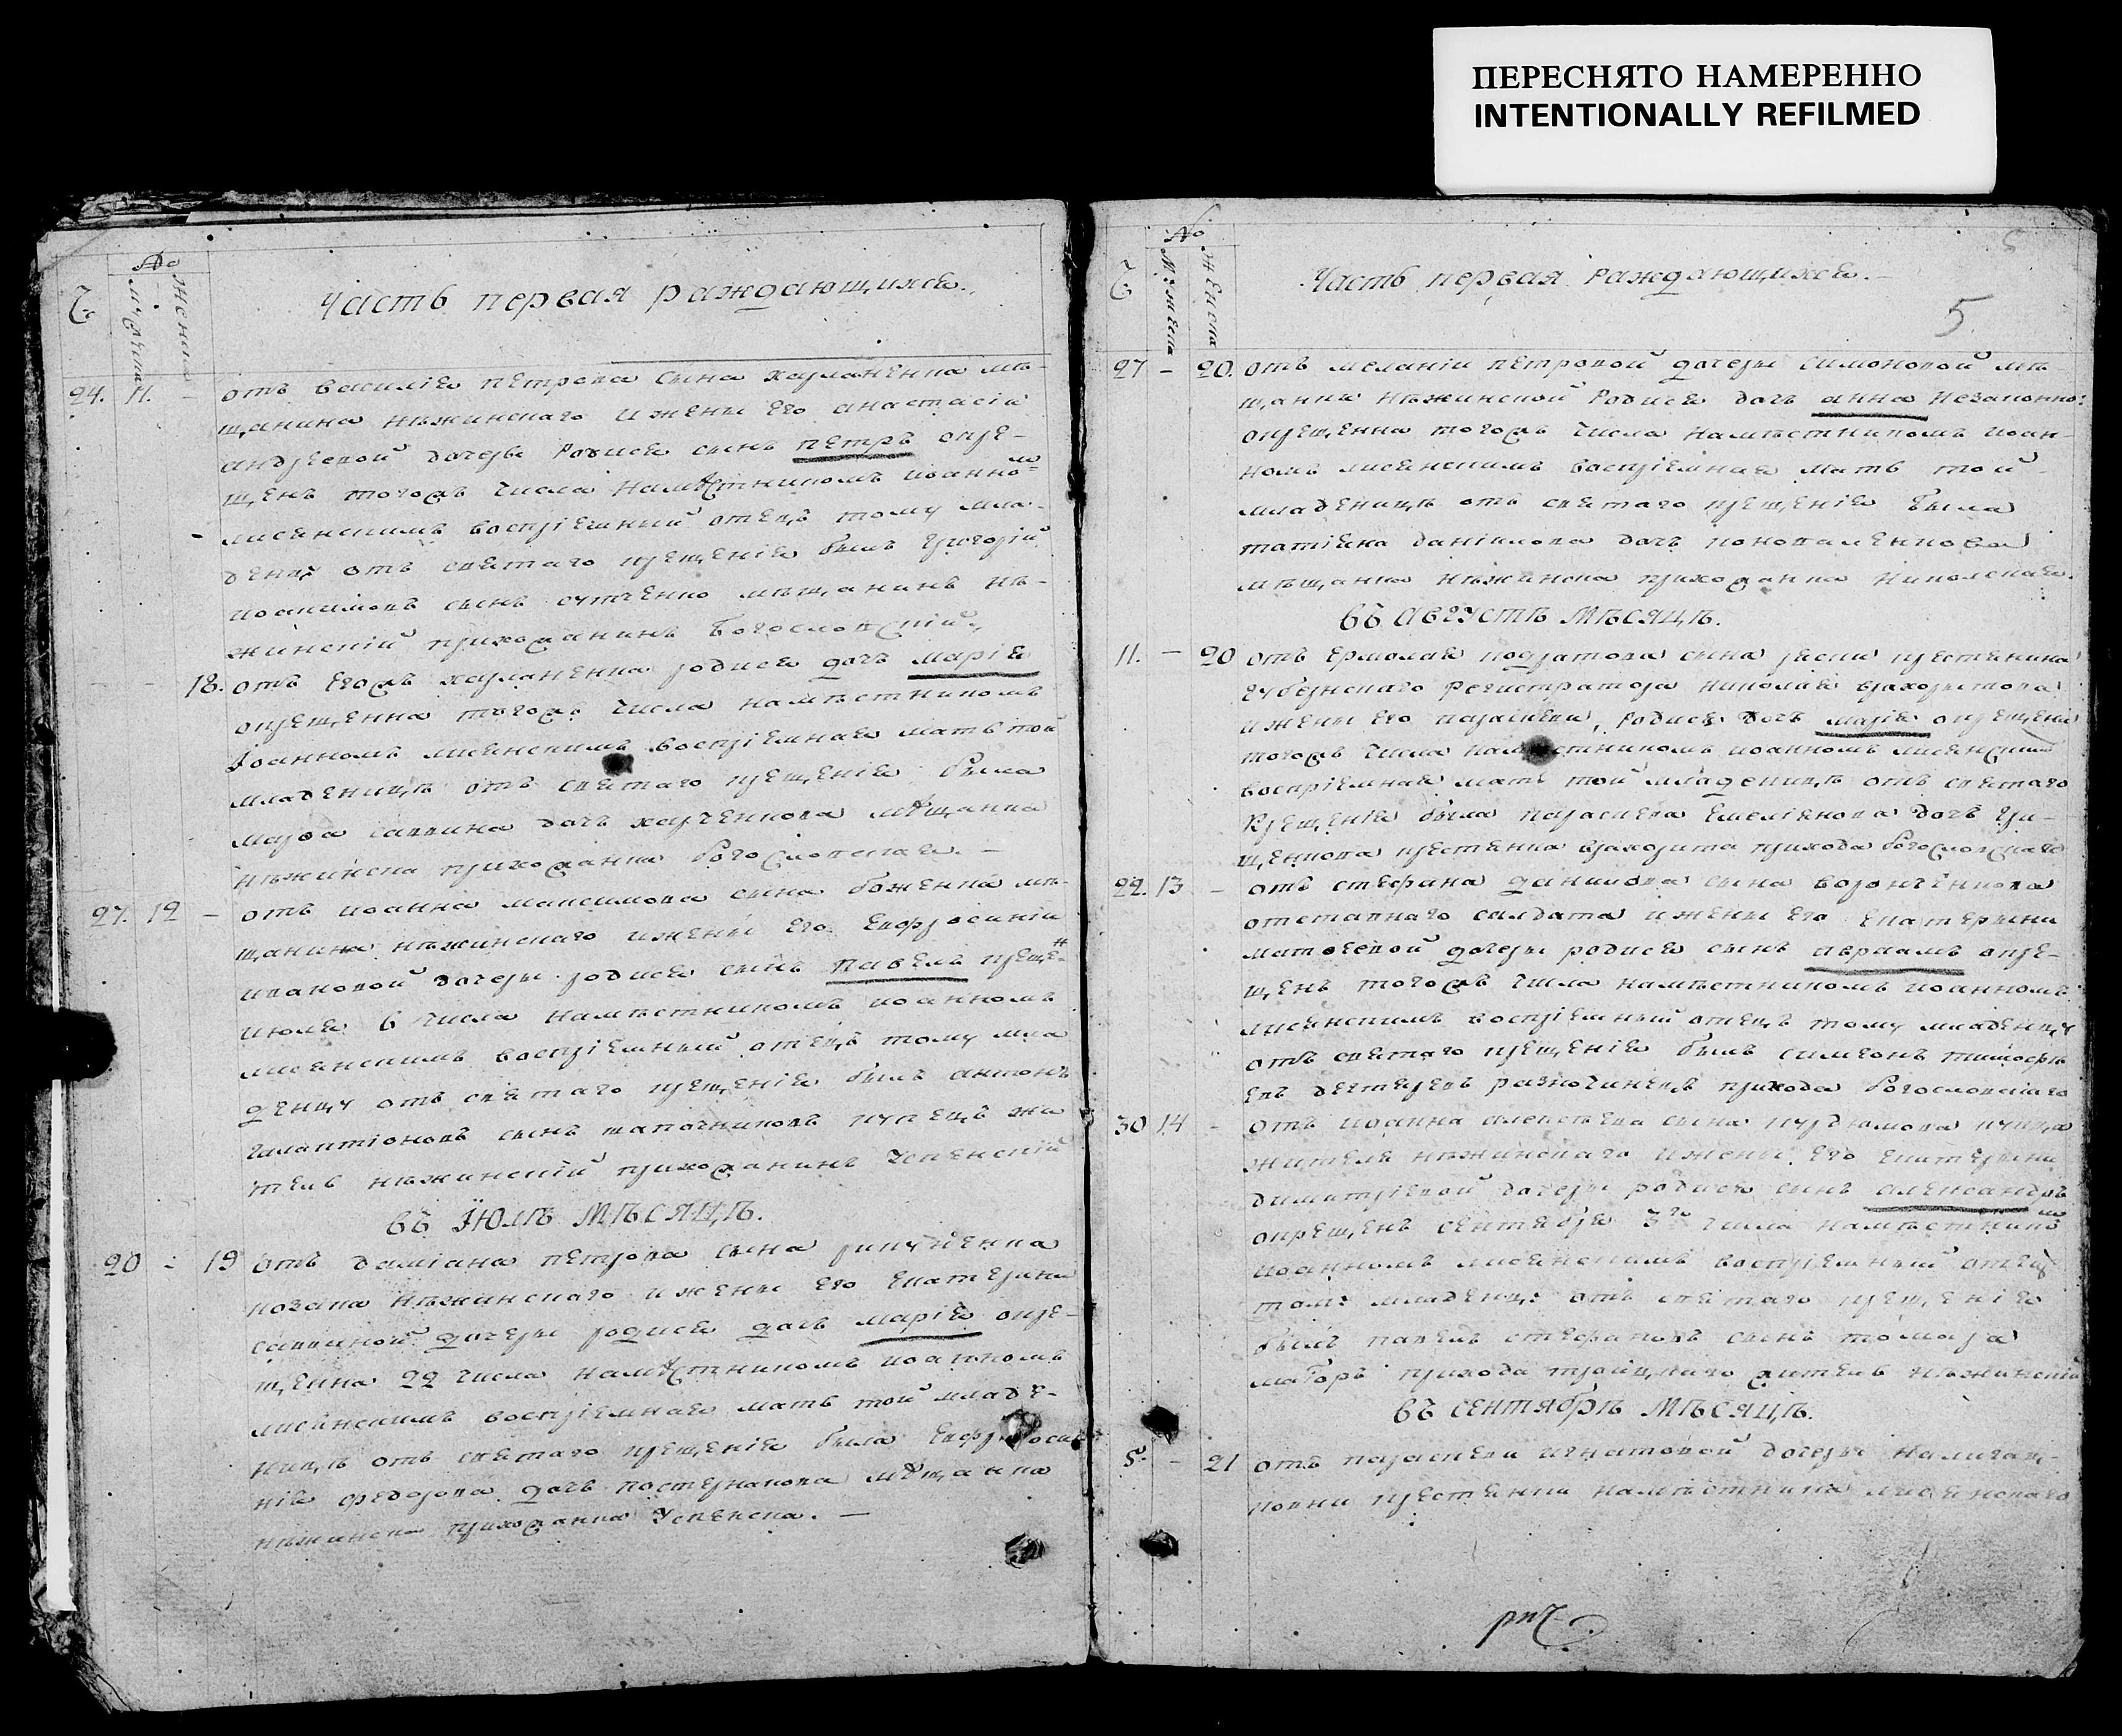 ПЕРЕСНЯТО НАМЕРЕННО
INTENTIONALLY REFILMED
№
Ч
мужеска
женска
Часть первая раждающихся.
24. 11. - отъ василія петрова сына хауланенка мѣ-
щанина нѣжинскаго и жены его анастасіи
андреевой дочеры родися сынъ петръ окре-
щенъ тогожъ числа намѣстникомъ иоанномъ
лисянскимъ воспріемный отецъ тому мла-
денцу отъ святаго крещенія былъ григорій
иоакимовъ сынъ мѣщанинъ нѣ-
жинскій прихожанинъ богословскій.
18. отъ егожъ хауланенка родися дочь марія
окрещенна тогожъ числа намѣстникомъ
іоанномъ лисянскимъ воспріемная мать той
младеницѣ отъ святаго крещенія была
марфа саввина дочь харченкова мѣщанка
нѣжинска прихожанка богословская. -
27. 12 - отъ иоанна максимова сына боженка мѣ-
щанина нѣжинскаго и жены его евфросиніи
ивановой дочеры родися сынъ павелъ крещенъ
июля 6 числа намѣстникомъ иоанномъ
лисянскимъ воспріемный отецъ тому мла
денцу отъ святаго крещенія былъ антонъ
галактіоновъ сынъ шапочниковъ купецъ жи
тель нѣжинскій прихожанинъ успенскій
въ Июлѣ мѣсяцѣ.
20 - 19 отъ даміана петрова сына
козака нѣжинскаго и жены его екатерины
саввиной дочеры родися дочь марія окре-
щенна 22 числа намѣстникомъ иоанномъ
лисянскимъ воспріемная мать той младе-
ницѣ отъ святаго крещенія была евфроси
нія федорова дочь мѣщанка
нѣжинска прихожанка успенска. -
№
Ч
мужеска
женска
Часть первая раждающихся. -
5
27 - 20. отъ меланіи петровой дочеры симоновой мѣ
щанки нѣжинской родися дочь анна незаконно:
окрещенна тогожъ числа намѣстникомъ иоан-
номъ лисянскимъ воспріемная мать той
младеницѣ отъ святаго крещенія была
татіяна даніилова дочь коноваленкова
мѣщанка нѣжинска прихожанка николская.
въ августѣ мѣсяцѣ.
11. - 20 отъ ермолая сына крестянина
губернскаго регистратора николая
и жены его параскеви, родися дочь марія окрещена
тогожъ числа намѣстникомъ иоанномъ лисянскимъ
воспріемная мать той младеницѣ отъ святаго
крещенія была параскева емеліянова дочь гри-
щенкова крестянка прихода богословскаго
22. 13 - отъ стефана данилова сына воронченкова
отставнаго салдата и жены его екатерины
матвеевой дочеры родися сынъ авраамъ окре-
щенъ тогожъ числа намѣстникомъ иоанномъ
лисянскимъ воспріемный отецъ тому младенцу
отъ святаго крещенія былъ симеонъ тимофѣ
евъ разночинецъ прихода богословскаго
30 14 - отъ иоанна алексѣева сына купца
жителя нѣжинскаго и жены его екатерины
димитріевой дочеры родися сынъ александръ
окрещенъ сентября 3го числа намѣстникомъ
иоанномъ лисянскимъ воспріемный отецъ
тому младенцу отъ святаго крещенія
былъ павелъ стефановъ сынъ
прихода троицкаго житель нѣжинскій
въ сентябрѣ мѣсяцѣ.
5. - 21 отъ параскеви игнатовой дочеры
крестянки намѣстника лисянскаго